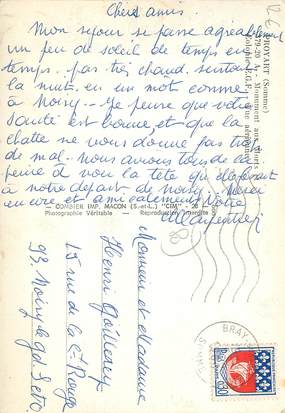 Chers amis
Mon séjour se passe agréablement
un peu de soleil de temps en
temps. pas très chaud surtout
la nuit. en un mot comme
à Noisy. Je pense que votre
santé est bonne, et que la
chatte ne vous donne pas trop
de mal. Nous avions tous de la
peine à voir la tête qu'elle faisait
à notre départ de Noisy. Merci
encore et amicalement votre
COMBIER IMP. MACON (S.-et-L.) "CIM"
Photographie Véritable - Reproduction interdite
FROYART (Somme)
79-20 A. - Monument aux Morts
Monsieur et Madame
Henri
15 rue de la Cx Rouge
93. Noisy-le-gd
BRAY
SOMME
0,30